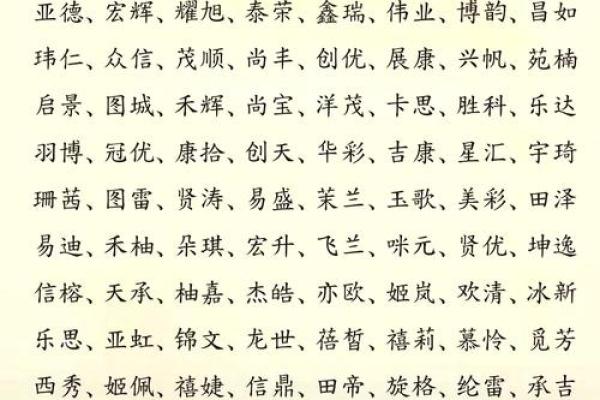 亚德、宏辉、耀旭、泰荣、鑫瑞、伟业、博韵、昌如
玮仁、众信、茂顺、尚丰、创优、展康、兴帆、苑楠
启景、图城、禾辉、尚宝、洋茂、卡思、胜科、乐达
羽博、冠优、康拾、创天、华彩、吉康、星汇、宇琦
珊茜、图雷、贤涛、易盛、茉兰、玉歌、美彩、田泽
易迪、禾柚、朵琪、宏升、飞兰、咪元、贤优、坤逸
信榕、天承、柚嘉、杰皓、亦欧、姬岚、欢清、冰新
乐思、亚虹、锦文、龙世、蓓皙、禧莉、慕怜、觅芳
西秀、姬佩、禧婕、信鼎、田帝、旋格、纶雷、承吉